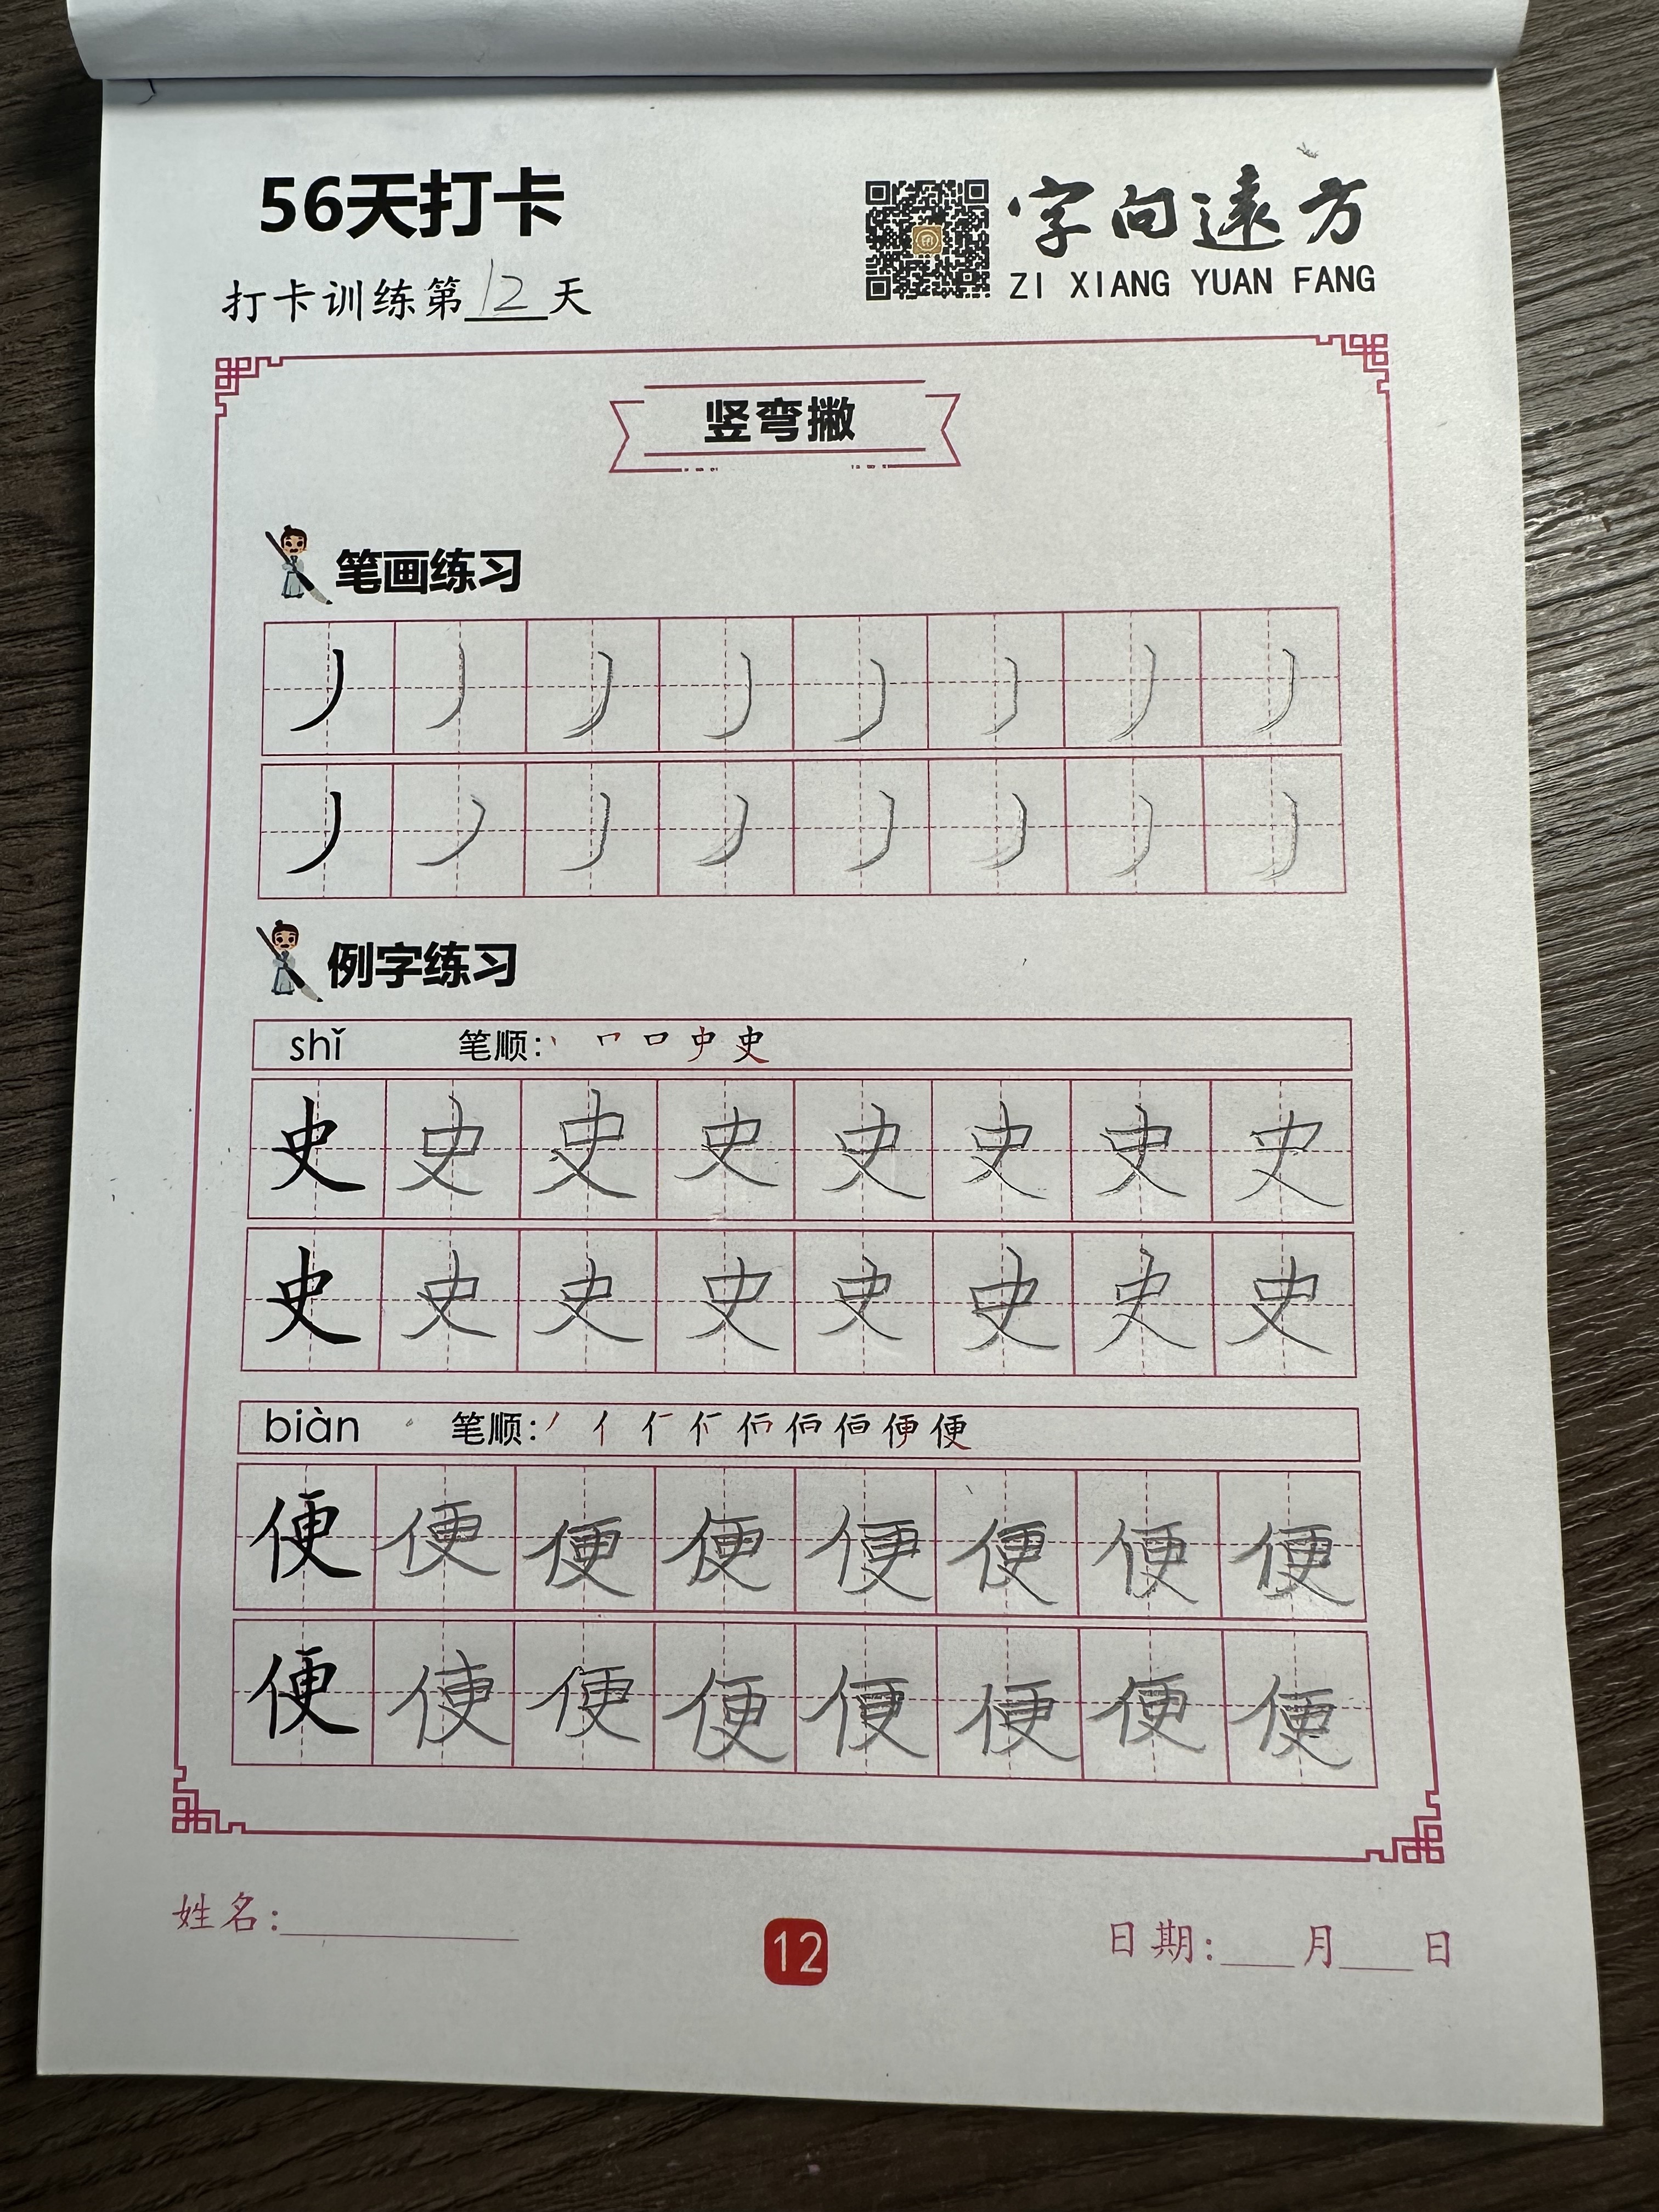 56天打卡
字向遠方
ZI XIANG YUAN FANG
打卡训练第12天
竖弯撇
笔画练习
丿丿丿丿丿丿丿丿
丿丿丿丿丿丿丿丿
例字练习
shǐ 笔顺: 丶 𠃍 口 史 史
史史史史史史史史
史史史史史史史史
biàn 笔顺: 丿 亻 便
便便便便便便便便
便便便便便便便便
姓名:
12
日期: 月 日